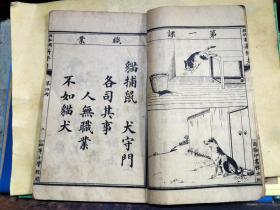 第一課
職業
貓捕鼠 犬守門
各司其事
人無職業
不如貓犬